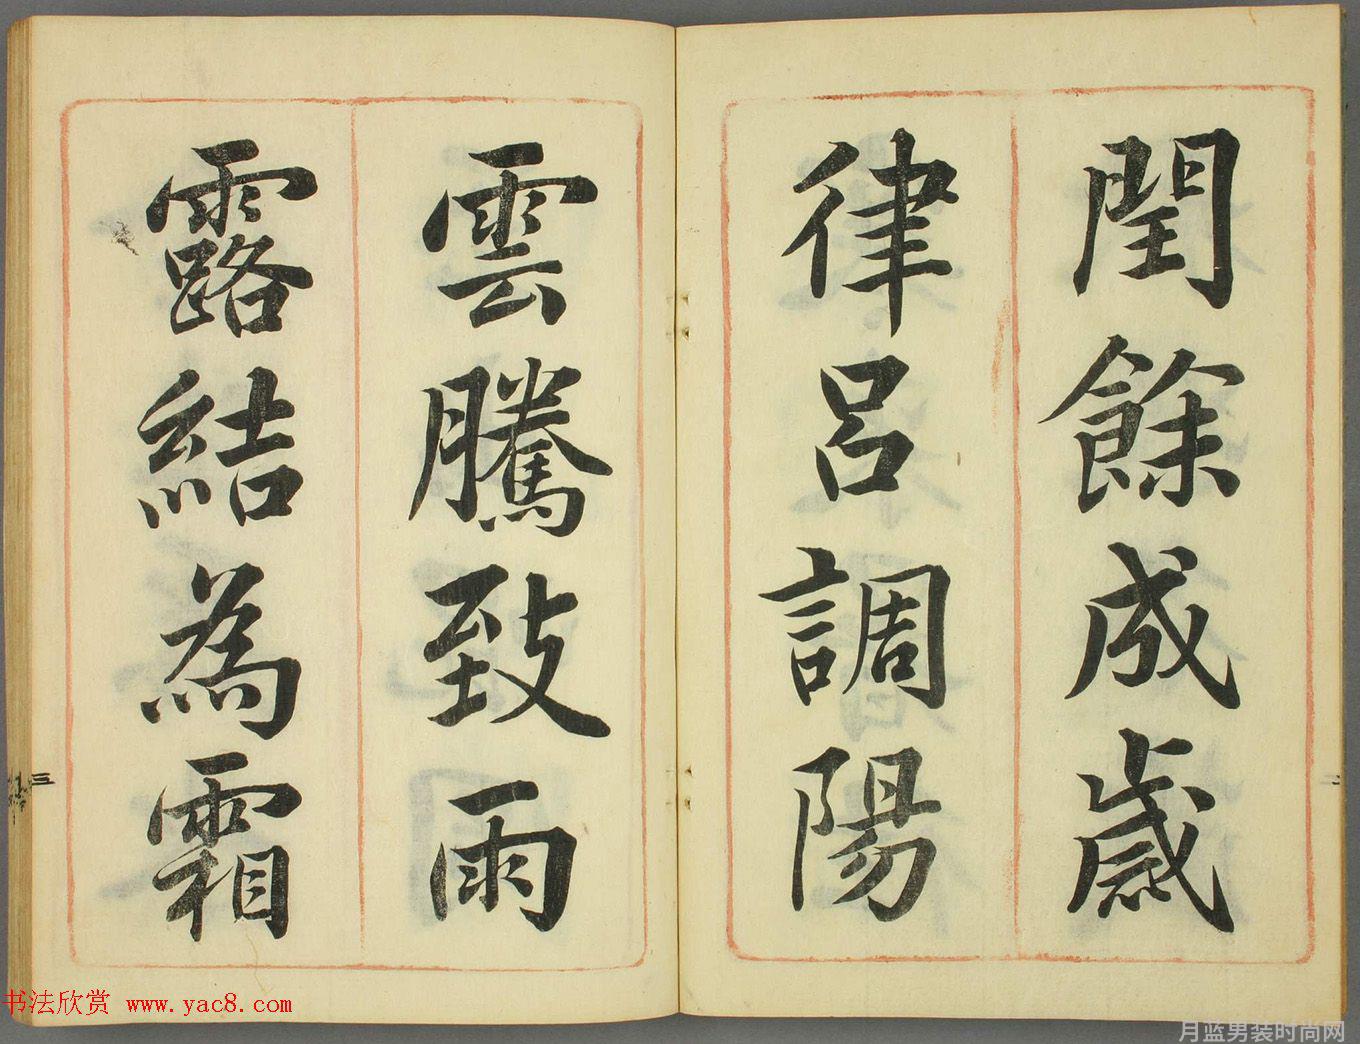 閏餘成歲
律呂調陽
雲騰致雨
露結為霜
二
三
书法欣赏 www.yac8.com
月蓝男装时尚网